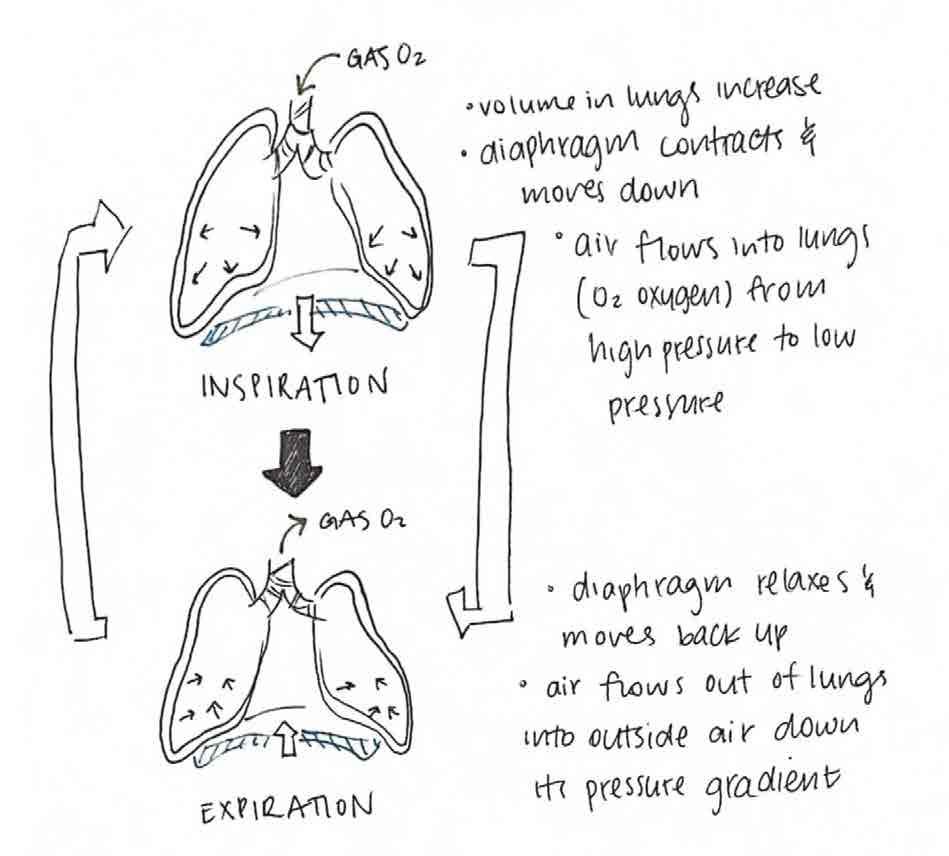 GAS O2
• volume in lungs increase
• diaphragm contracts &
moves down
• air flows into lungs
(O2 oxygen) from
high pressure to low
pressure
INSPIRATION
GAS O2
• diaphragm relaxes &
moves back up
• air flows out of lungs
into outside air down
its pressure gradient
EXPIRATION